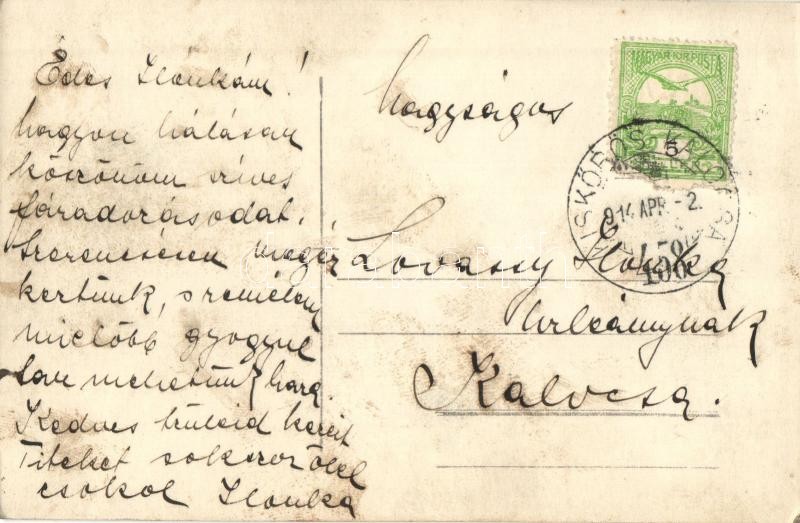 Édes Ilonkám!
nagyon hálásan
köszönöm szíves
fáradozásodat.
Szerencsésen megér
keztünk, s remélem
mielőbb gyogyul
tan mehetünk haza.
Kedves szüleid kezeit
Titeket sokszor ölel
csókol Ilonka
Nagyságos
Lovassy Ilonka
Urleánynak
Kalocsa.
MAGYAR KIR. POSTA
5
KISKŐRÖS KALOCSA
914 APR. - 2.
100